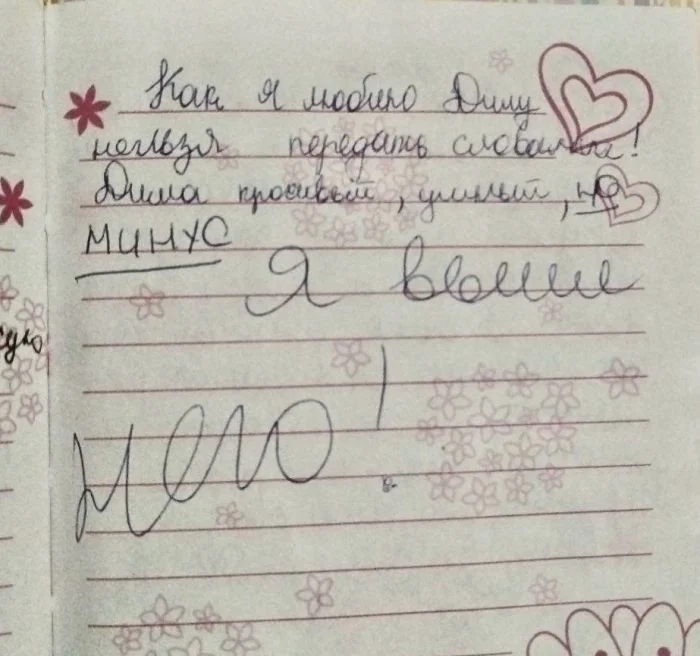 Как я люблю Диму
нельзя передать словами!
Дима красивый, умный, но
МИНУС
Я выше
него!